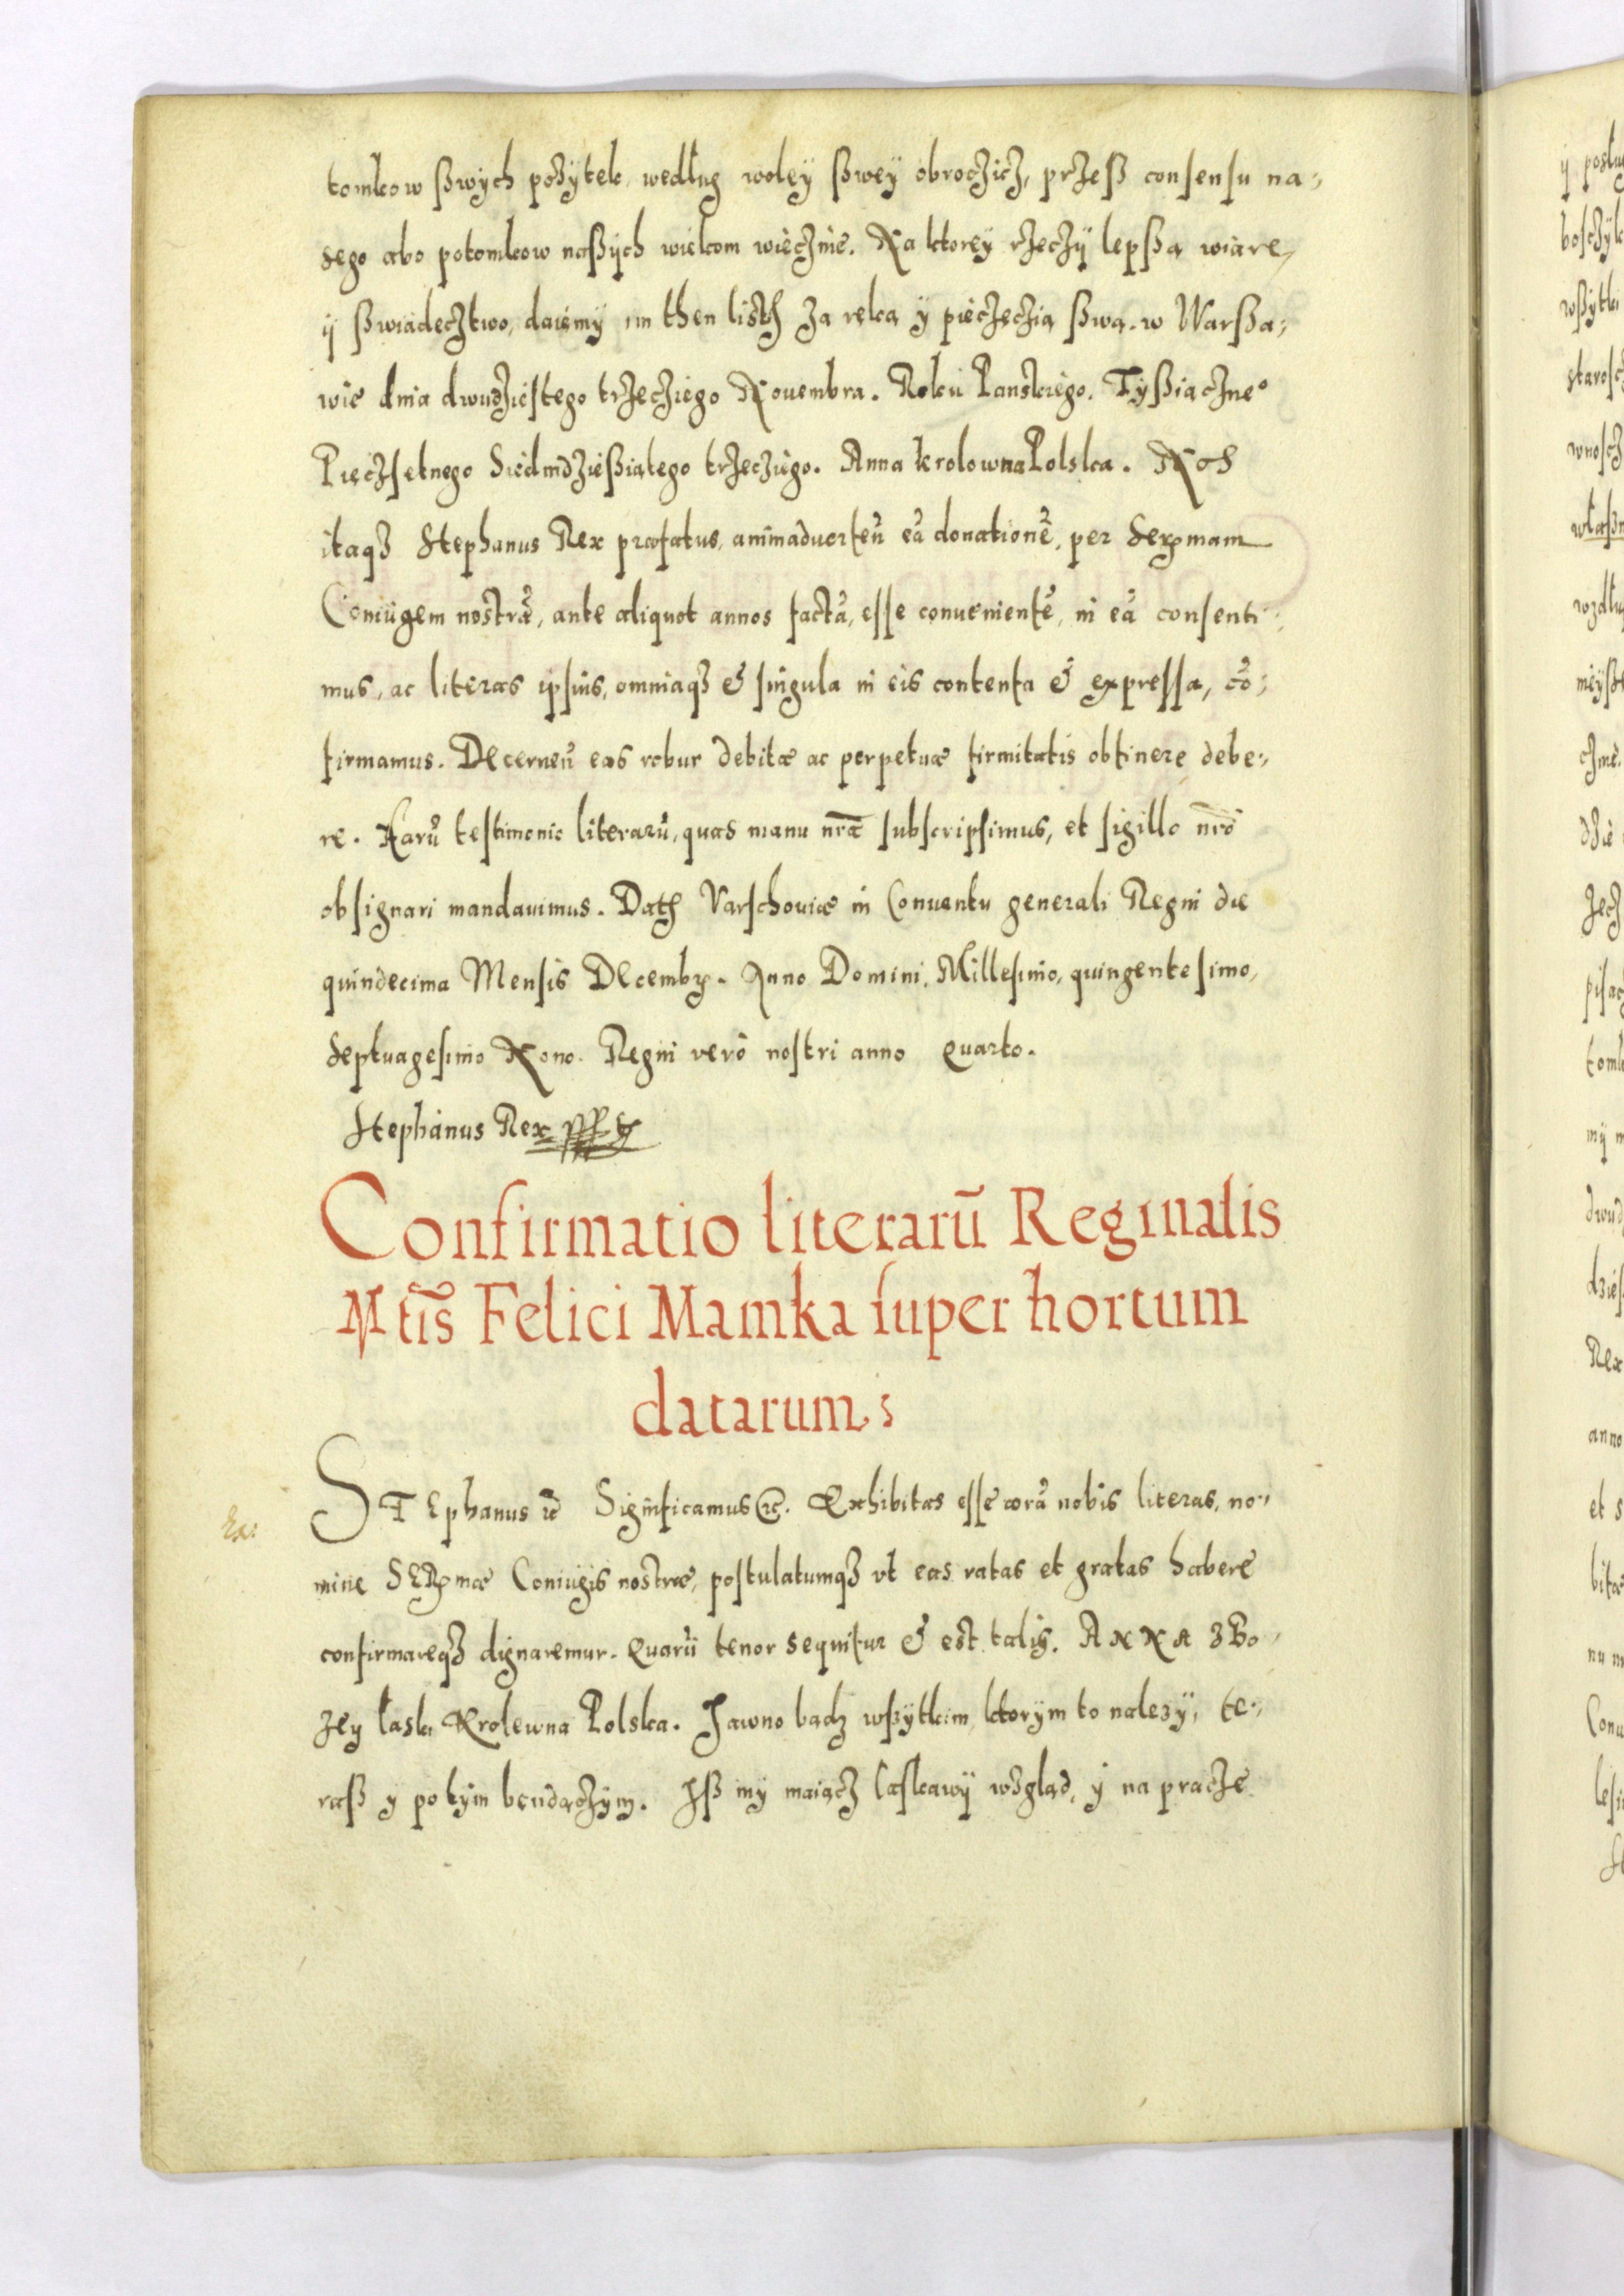 tomkow ßwych pożytek, według woley ßwey obroczicz, przeß consensu na-
sego abo potomkow naßych wiekom wiecznie. Na ktorey rzeczy lepßą wiarę,
y ßwiadecztwo, daiemy im then listh za ręką y pieczęczią ßwą. w Warßa-
wie dnia dwudziestego trzecziego Nouembra. Roku Panskiego. Tyßiączne°
Pięczsetnego Siedmdzießiątego trzecziego. Anna krolowna Polska. Nos
itaqȝ Stephanus Rex præfatus, animaduerteñ eã donationẽ, per Serꝫmam
Coniugem nostrã, ante aliquot annos factã, esse conuenientẽ, in eã consenti-
mus, ac literas ipsius, omniaqȝ & singula in eis contenta & expressa, cõ-
firmamus. Decerneñ eas robur debitæ ac perpetuæ firmitatis obtinere debe-
re. Harũ testimonio literarũ, quas manu nr̃a subscripsimus, et sigillo nr̃o
obsignari mandauimus. Dath Varschouiæ in Conuentu generali Regni die
quindecima Mensis Decembꝶ. Anno Domini, Millesimo, quingentesimo,
Septuagesimo Nono. Regni verò nostri anno quarto.
Stephanus Rex
Confirmatio literarũ Reginalis
Mt̃is Felici Mamka super hortum
datarum
STEphanus ꝛc̃ Significamus ꝛc̃. Exhibitas esse corã nobis literas, no-
mine SERꝫmæ Coniugis nostræ, postulatumqȝ vt eas ratas et gratas habere
confirmareqȝ dignaremur. Quarũ tenor sequitur & est talis. ANNA z Bo-
zey łaski Krolewna Polska. Jawno bądz wßytkim, ktorym to nalezy, te-
raß y potym bendączym. Iß my maiącz łaskawy wzgląd, y na pracze